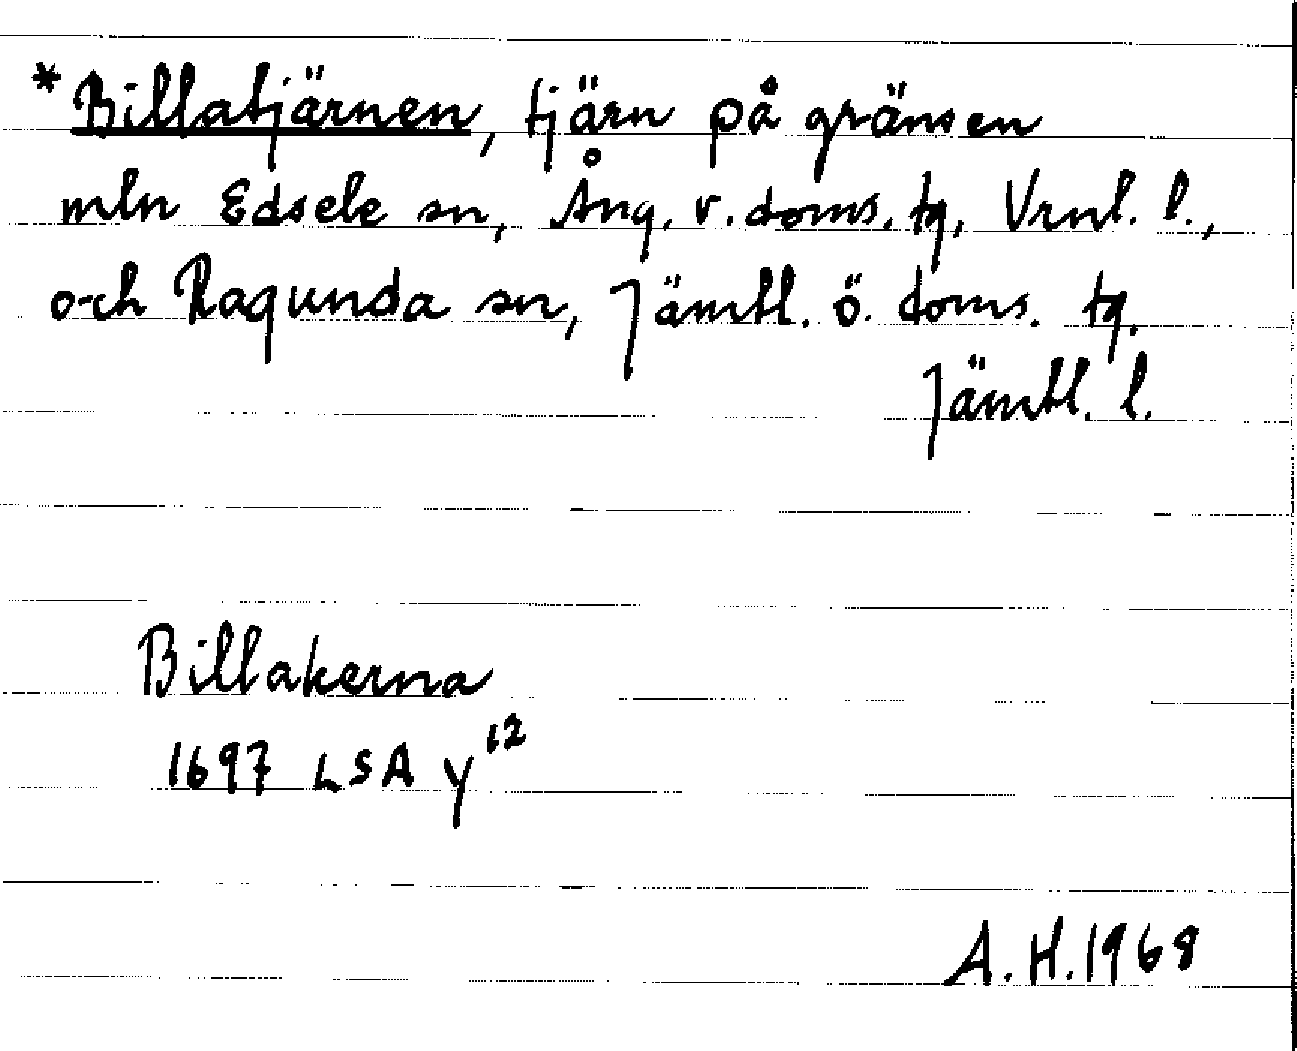 *Billatjärnen, tjärn på gränsen
mln Edsele sn, Ång. v. doms. tg, Vrnl. l.,
och Ragunda sn, Jämtl. ö. doms. tg.
Jämtl. l.
Billakerna
1697 LSA y¹²
A. H. 1968